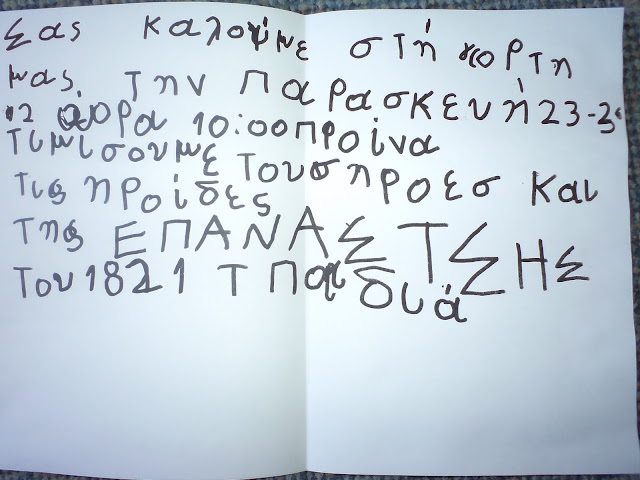 Σας καλουμε στή γορτη
μας, την Παρασκευή 23-3-
12 ώρα 10:00 προίνα
τιμίσουμε τουσ ηροεσ και
τις ηροίδες
της ΕΠΑΝΑΣΤΣΗΣ
του 1821 Τ Παιδιά